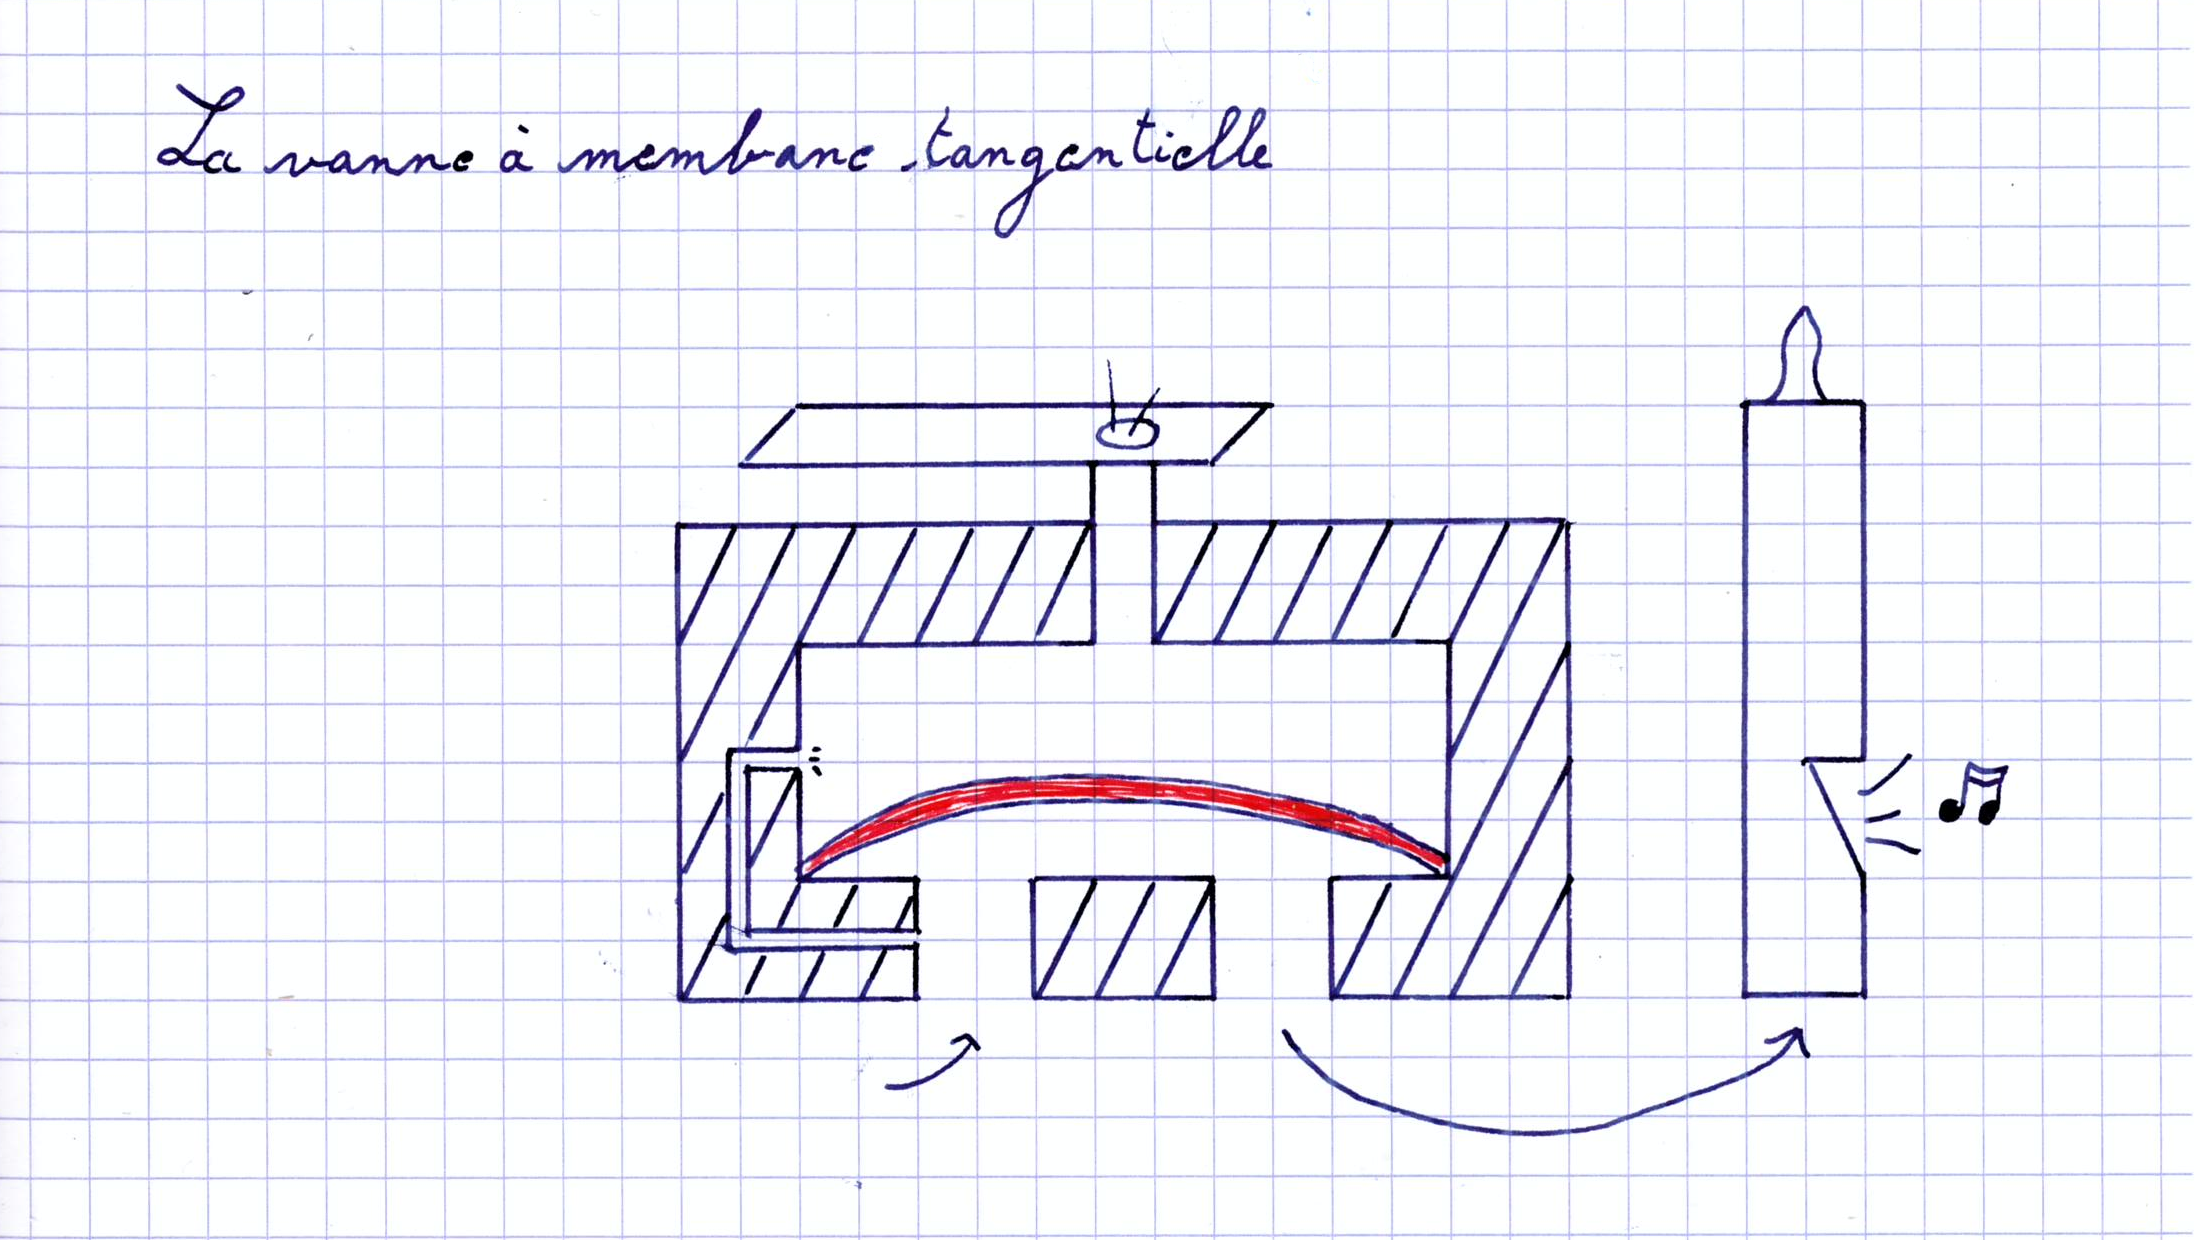 La vanne à membrane tangentielle